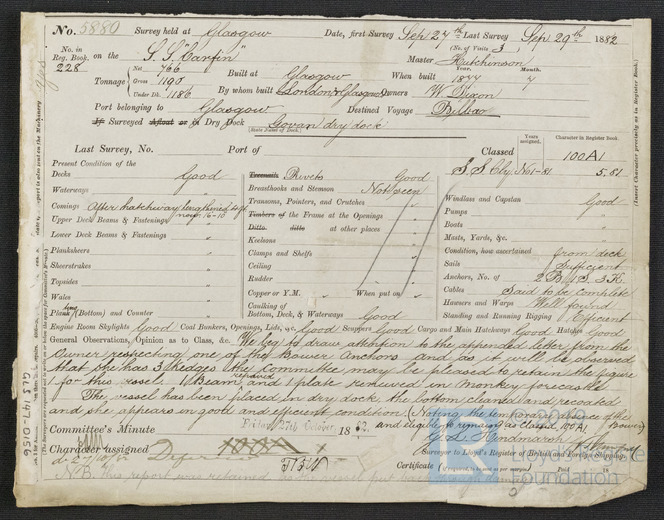 No. 5880 Survey held at Glasgow Date, first Survey Sep 27th Last Survey Sep 29th 1882
(No. of Visits 3)
No. in Reg. Book. 228 on the S.S. "Canfin" Master Hutchinson
Tonnage Net 766 Gross 1198 Under Dk. 1186 Built at Glasgow When built Year. 1877 Month. 7
By whom built London & Glasgow Owners W Dixon
Port belonging to Glasgow Destined Voyage Bilbao
If Surveyed Afloat or in Dry Dock Govan dry dock
(State Name of Dock.)
Last Survey, No. Port of Classed Years assigned. Character in Register Book. 100A1
S S Cly. No1-81 5.81
Present Condition of the
Decks Good
Waterways "
Comings After hatchway lengthened
Upper Deck Beams & Fastenings "
Lower Deck Beams & Fastenings "
Planksheers
Sheerstrakes "
Topsides "
Wales "
Plank (Bottom) and Counter "
Treenails Rivets Good
Breasthooks and Stemson Not seen
Transoms, Pointers, and Crutches
Timbers of the Frame at the Openings
Ditto. ditto at other places
Keelsons
Clamps and Shelfs
Ceiling
Rudder
Copper or Y.M. When put on
Caulking of Bottom, Deck, & Waterways Good
Windlass and Capstan Good
Pumps "
Boats "
Masts, Yards, &c. "
Condition, how ascertained from dock
Sails Sufficient
Anchors, No. of 2 B 1 S 3 K
Cables Said to be complete
Hawsers and Warps Well found
Standing and Running Rigging Efficient
Engine Room Skylights Good Coal Bunkers, Openings, Lids, &c. Good Scuppers Good Cargo and Main Hatchways Good Hatches Good
General Observations, Opinion as to Class, &c. We beg to draw attention to the appended letter from the
Owner respecting one of the Bower Anchors and as it will be observed
that she has 3 Kedges the Committee may be pleased to retain the figure
for this vessel. 1 Beam and 1 plate renewed in Monkey forecastle
The vessel has been placed in dry dock the bottom cleaned and recoated
and she appears in good and efficient condition (Noting the temporary absence of the Bower)
and eligible to remain as classed, 100A1
Committee's Minute Friday 27th October 1882.
Character assigned 100A1
G. L. Hindmarsh
Surveyor to Lloyd's Register of British and Foreign Shipping.
Certificate (if required, to be sent as per margin) Paid 18
N.B. This report was retained
GLS 147-0156
(Insert Character precisely as in Register Book.)
© 2020
Lloyd's Register
Foundation